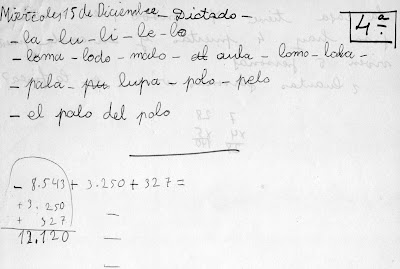 Miércoles 15 de Diciembre - Dictado -
4ª
- la - lu - li - le - lo
- loma - lodo - malo - aula - lomo - loba -
- pala - lupa - polo - pelo
- el palo del polo
- 8.543 + 3.250 + 327 =
+ 3.250
+ 327
12.120